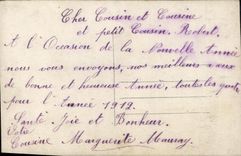 Cher Cousin et Cousine
et petit Cousin, Robert.
A l'Occasion de la Nouvelle Année
nous vous envoyons, nos meilleurs vœux
de bonne et heureuse Année, toutes les
pour l'Année 1912.
Santé Joie et Bonheur.
Votre
Cousine Marguerite Mauray.